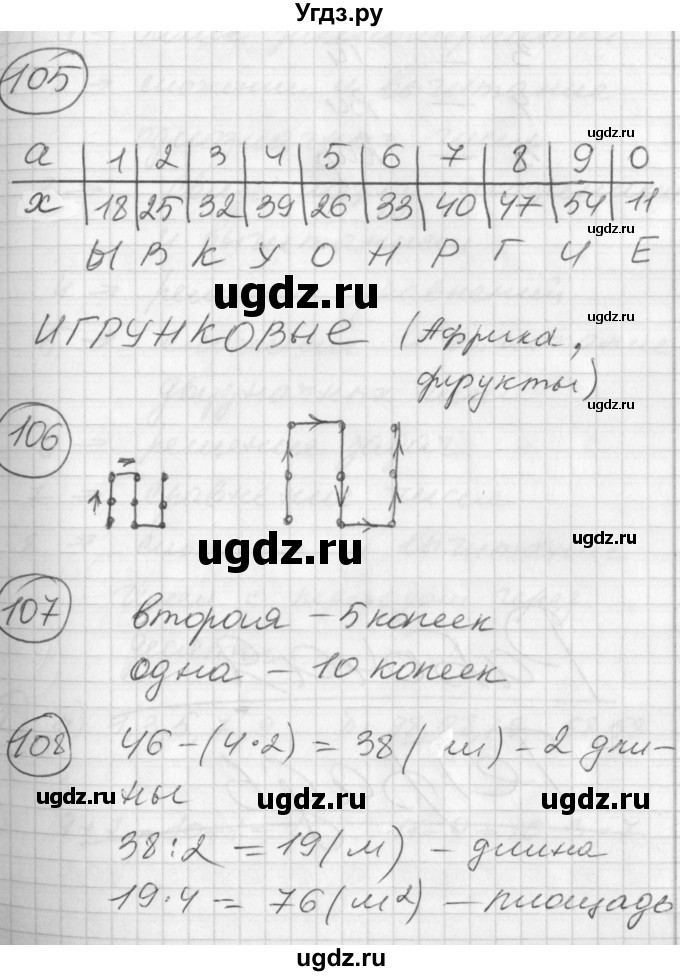 Угдз.ру
105
ugdz.ru
а 1 2 3 4 5 6 7 8 9 0
ugdz.ru
х 18 25 32 39 26 33 40 47 54 11
Ы В К У О Н Р Г И Е
ugdz.ru
ugdz.ru
ИГРУНКОВЫЕ (Африка,
фрукты)
ugdz.ru
106
ugdz.ru
ugdz.ru
107 вторая – 5 копеек
одна – 10 копеек
ugdz.ru
108 46 – (4·2) = 38 (м) – 2 дли-
ны
ugdz.ru ugdz.ru ugdz.ru
38:2 = 19 (м) – длина
19·4 = 76 (м²) – площадь
ugdz.ru